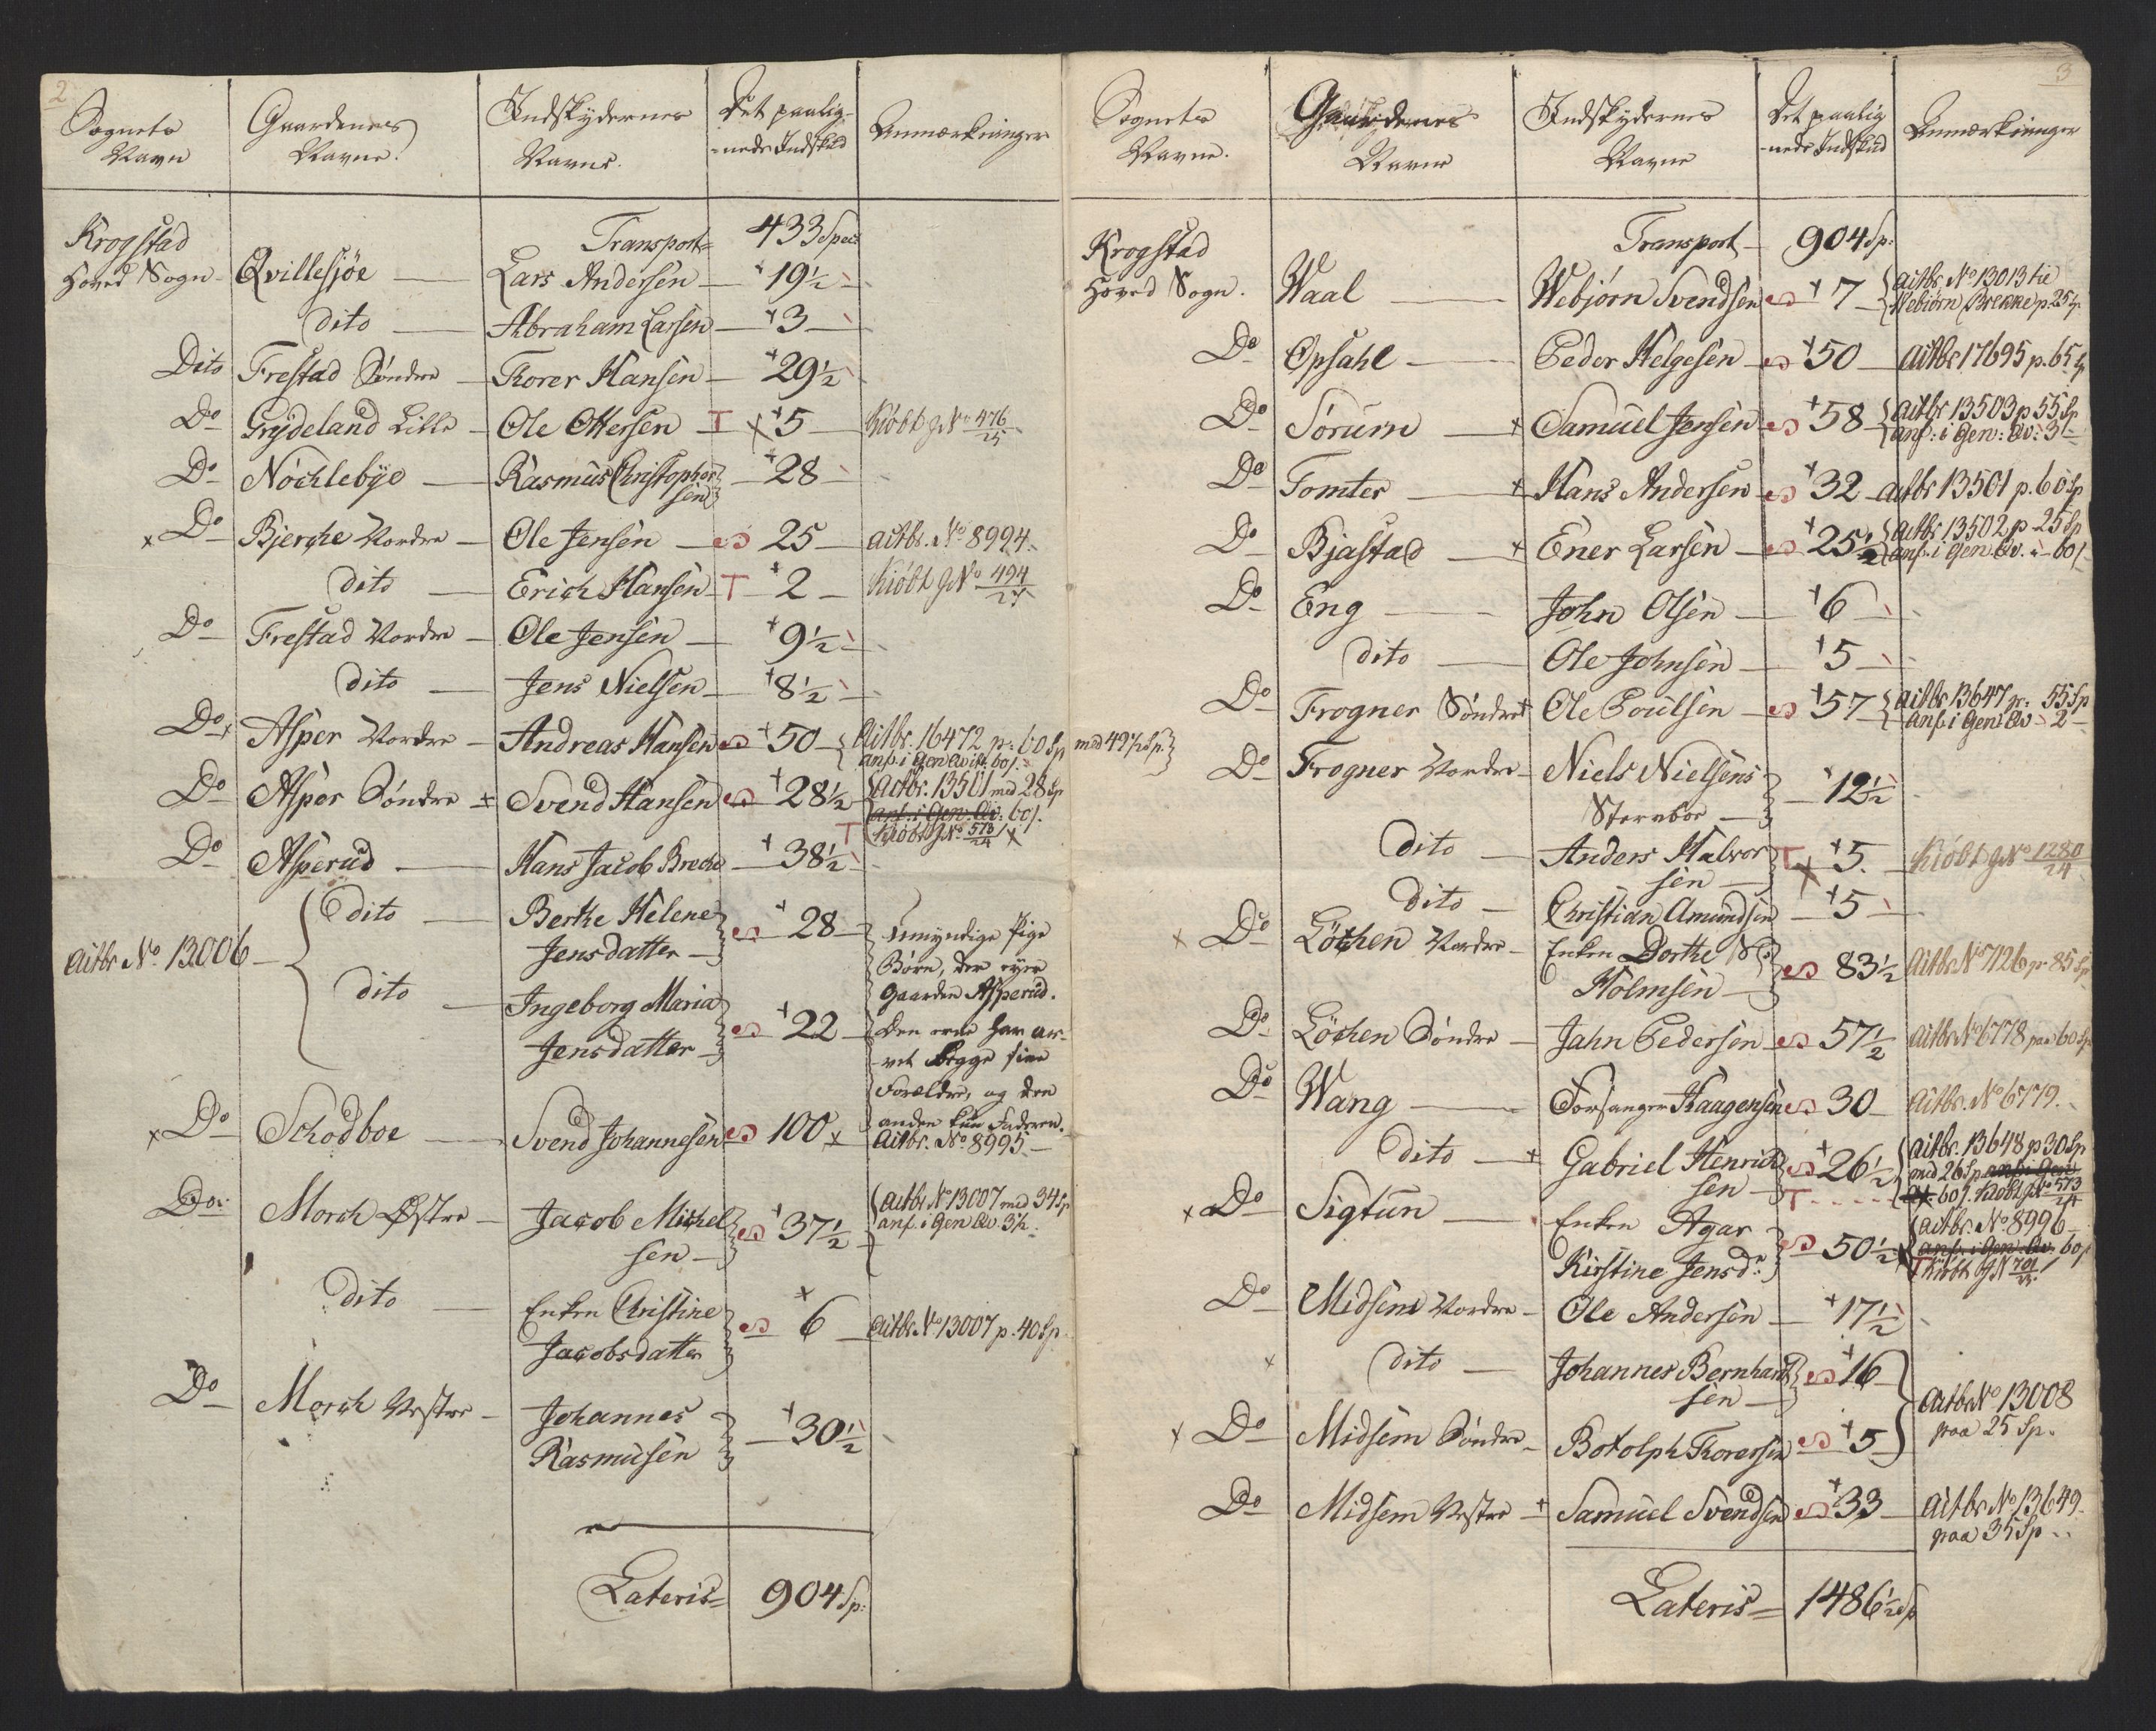 2
Sognets Navn
Gaardenes Navne.
Indskydernes Navne.
Det paalignede Indskud
Anmærkninger
Krogstad Hoved Sogn
Transport= 433 Spec:
Qvillesjøe — Lars Andersen — 19½
dito — Abraham Larsen — 3
Dito Frestad Søndre — Thorer Hansen — 29½
Do Grydeland Lille — Ole Ottersen T 5 — Kiöbt g No 476/25
Do Nöchlebye — Rasmus Christophersen — 28
Do Bjerche Nordre — Ole Jensen — 25 — Actbr. No 8994.
dito — Erich Hansen T 2 — Kiöbt g No 494/25
Do Frestad Nordre — Ole Jensen — 9½
dito — Jens Nielsen — 8½
Do Asper Nordre — Andreas Hansen — 50 — Actbr. 16472 p: 60 Sp med 49½ Sp.
anf. i Gen Qvitt. 60/.
Do Asper Søndre — Svend Hansen — 28½ — Actbr. 13501 med 28 Sp
anf. i Gen. Qv: 60/.
T Kiöbt g No 573/24
Do Asperud — Hans Jacob Breche — 38½
Actbr No 13006
dito — Berthe Helene Jensdatter — 28
dito — Ingeborg Maria Jensdatter — 22
Umyndige Pige
Børn, der eyer
Gaarden Asperud.
Den eene har ar-
vet begge sine
Forældre, og den
anden kun Faderen.
Do Schodboe — Svend Johannesen — 100 — Actbr. No 8995 —
Do: Morch Østre — Jacob Michelsen — 37½ — Actbr No 13007 med 34 Sp
anf. i Gen Qv. 3½.
dito — Enken Christine Jacobsdatter — 6 — Actbr No 13007 p. 40 Sp.
Do Morch Vestre — Johannes Rasmusen — 30½
Lateris= 904 Sp:
3
Sognets Navne.
Gaardenes Navne
Indskydernes Navne
Det paalignede Indskud
Anmærkninger
Krogstad Hoved Sogn.
Transport — 904 Sp:
Waal — Webjørn Svendsen — 7 — Actbr. No 13013 til
Webjørn Brekke p. 25 Sp.
Do Opsahl — Peder Helgesen — 50 — Actbr 17695 p. 65 Sp
Do Sørum — Samuel Jensen — 58 — Actbr 13503 p 55 Sp
anf: i Gen: Qv: 3 —
Do Tomter — Hans Andersen — 32 — Actbr 13501 p. 60 Sp
Do Bjastad — Ener Larsen — 25½ — Actbr 13502 p 25 Sp
anf. i Gen Qv. - 60/.
Do Eng — John Olsen — 6
dito — Ole Johnsen — 5
Do Frogner Søndre — Ole Poulsen — 57 — Actbr 13647 pr: 55 Sp
anf. i Gen: Qv - 2 —
Do Frogner Nordre — Niels Nielsens Stervboe — 12½
dito — Anders Halvorsen T 5. — Kiöbt g No 1280/24
dito — Christian Amundsen — 5
Do Löchen Nordre — Enken Dorthe Holmsen — 83½ — Actbr No 7126 p 85 Sp
Do Löchen Søndre — Jahn Pedersen — 57½ — Actbr No 6778 paa 60 Sp
Do Wang — Forsanger Haagensen — 30 — Actbr. No 6779.
dito — Gabriel Henrichsen — 26½ — Actbr. 13648 p 30 Sp
med 26 Sp anf. i Gen
Qv. 60/. Kiöbt g No 573/24
Do Sigtun — Enken Agar Kirstine Jensdr. — 50½ — Actbr. No 8996 —
anf. i Gen. Qv. 60/
T Kiöbt g N 701/25
Do Midsem Nordre — Ole Andersen — 17½
dito — Johannes Bernhardsen — 16
Do Midsem Søndre — Botolph Thoresen — 5
Actbr No 13008
paa 25 Sp.
Do Midsem Vestre — Samuel Svendsen — 33 — Actbr No 13649.
paa 35 Sp
Lateris= 1486½ Sp